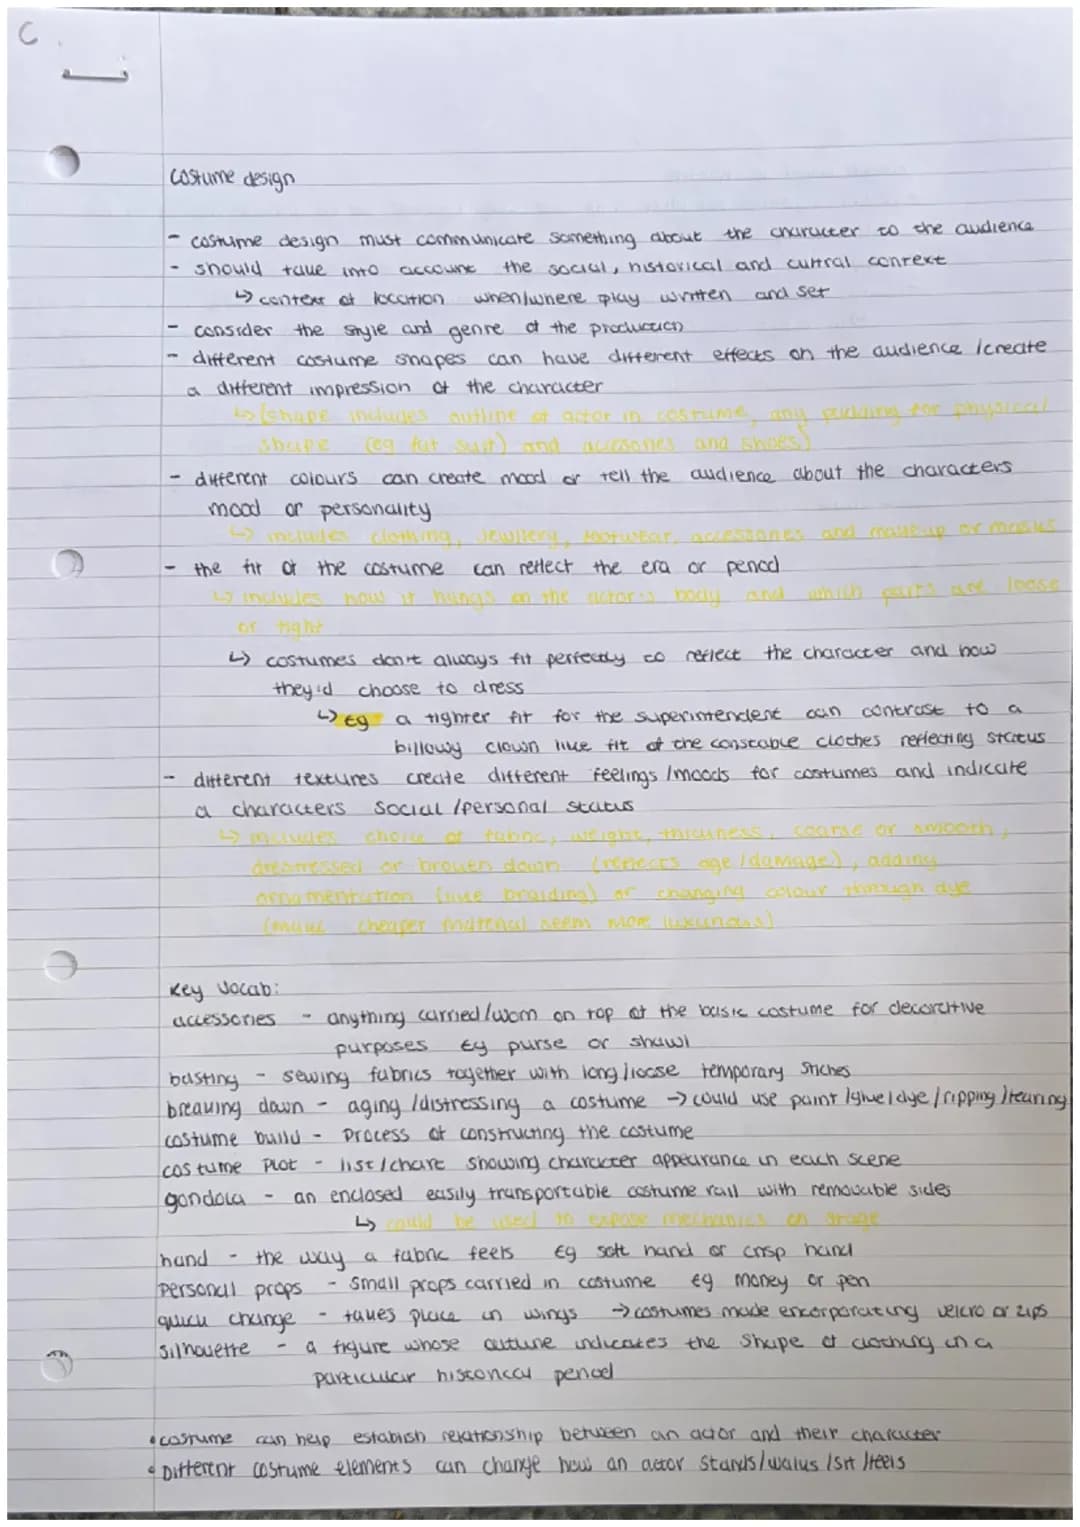 C
Costume design
- costume design must communicate something about the character to the audience
- should take into account the social, historical and cultral context
↳ context of location when/where play written and set
- consider the style and genre of the production
- different costume shapes can have different effects on the audience /create
a different impression of the character
↳ (shape includes outline of actor in costume, any padding for physical
shape (eg fat suit) and accessories and shoes)
- different colours can create mood or tell the audience about the characters
mood or personality
↳ includes clothing, jewllery, footwear, accessories and makeup or masks
- the fit of the costume can reflect the era or period
↳ includes how it hangs on the actor's body and which parts are loose
or tight
↳ costumes don't always fit perfectly to reflect the character and how
they'd choose to dress
↳ Eg a tighter fit for the superintendent can contrast to a
billowy clown like fit of the constable clothes reflecting status
- different textures create different feelings /moods for costumes and indicate
a characters social /personal status
↳ includes choice of fabric, weight, thickness, coarse or smooth,
distressed or broken down (reflects age /damage), adding
ornamentation (like braiding) or changing colour through dye
(make cheaper material seem more luxurious)
Key vocab:
accessories - anything carried/worn on top of the basic costume for decorative
purposes Eg purse or shawl
basting - sewing fabrics together with long/loose temporary stiches
breaking down - aging /distressing a costume → could use paint /glue/dye /ripping /tearing
costume build - Process of constructing the costume
costume plot - list/chart showing character appearance in each scene
gondola - an enclosed easily transportable costume rail with removable sides
↳ could be used to expose mechanics on stage
hand - the way a fabric feels Eg soft hand or crisp hand
Personal props - small props carried in costume eg money or pen
quick change - takes place in wings → costumes made encorporating velcro or zips
silhouette - a figure whose outline indicates the shape of clothing in a
particular historical period
• costume can help establish relationship between an actor and their character
• Different costume elements can change how an actor stands/walks /sit /feels